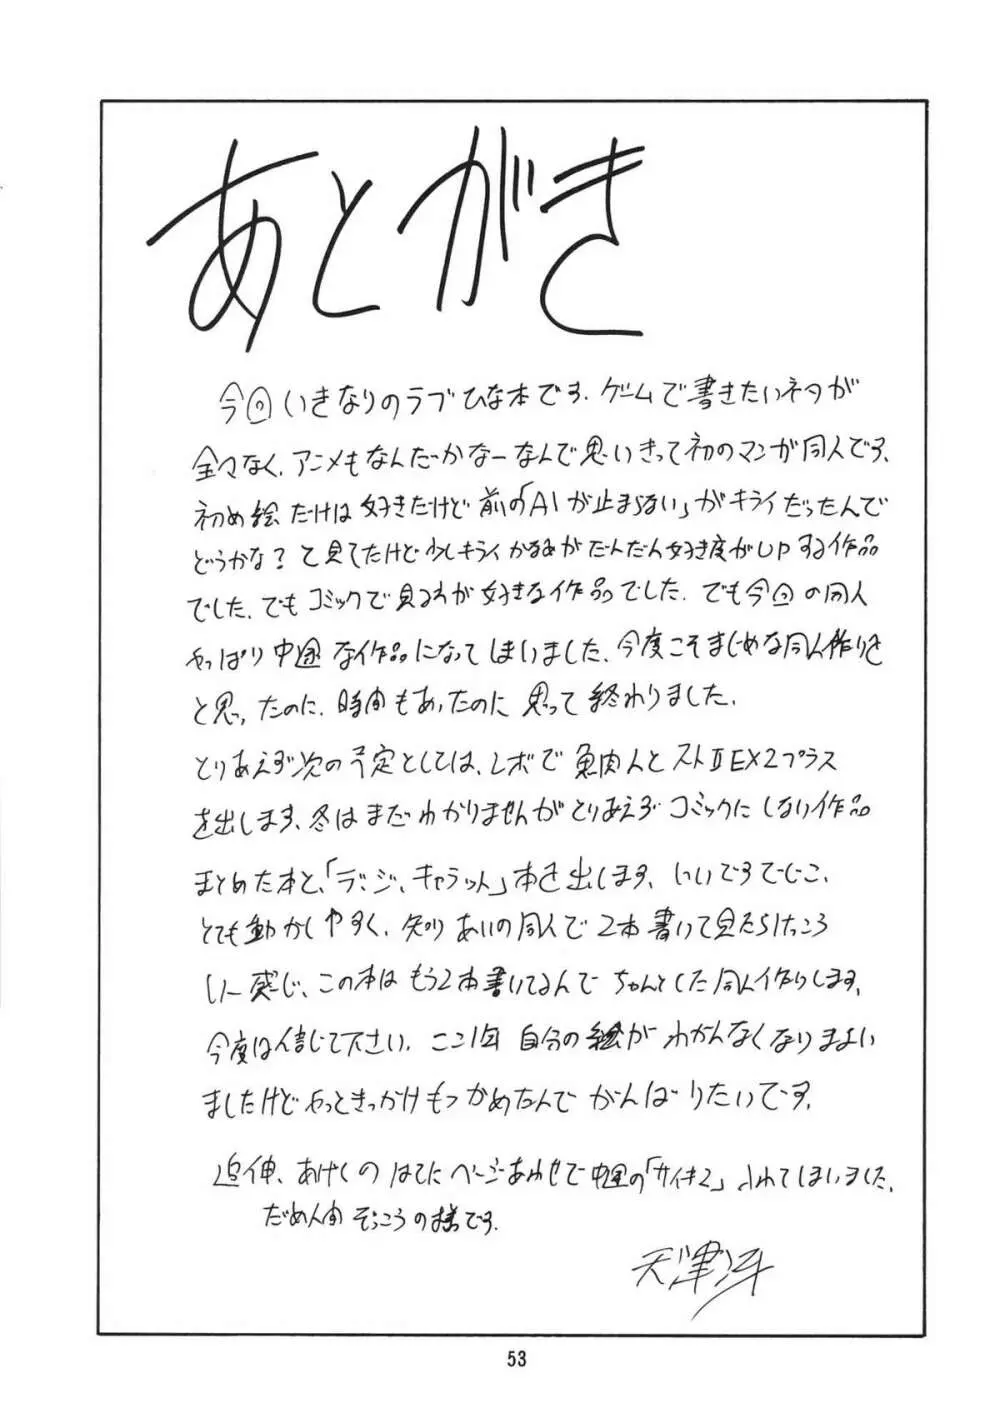 あとがき
今回いきなりのラブひな本です. ゲームで書きたいネタが
全々なく、アニメもなんだかなーなんで思いきって初のマンガ同人です、
初め絵だけは好きだけど前の「AIが止まらない」がキライだったんで
どうかな？と見てたけど少しキライかるめがだんだん好き度がUPする作品
でした、でもコミックで見るのが好きな作品でした. でも今回の同人
やっぱり中途な作品になってしまいました、今度こそまじめな同人作りを
と思ったのに、時間もあったのに思って終わりました.
とりあえず次の予定としては、レボで魚肉人とストⅡEX2プラス
を出します、冬はまだわかりませんがとりあえずコミックにしない作品
まとめた本と、「デ・ジ・キャラット」本を出します、いいですでじこ、
とても動かしやすく、知りあいの同人で2本書いて見たらけっこう
いー感じ、この本はもう2本書いてるんでちゃんとした同人作りします、
今度は信じて下さい. ここ1年自分の絵がわかんなくなりまよい
ましたけどやっときっかけもつかめたんでがんばりたいです.
追伸、あげくのはてにページあわせで中途の「サイキ2」入れてしまいました、
だめ人間ぞっこうの様です.
天津冴
53